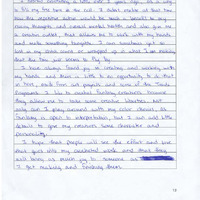 I started crocheting a little over 2 years ago, as a way
to fill my free time at the time. I didn't realise at that time
how this repetitive action would be such a benefit to my
coming therapies, and overall mental health and also give me
a creative outlet, that allows me to work with my hands
and make something tangible. I can sometimes get so
lost in my latest creation or wrapped up in what I am making
that the time just seems to fly by.
I have always found joy in creating and working with
my hands and there is little to no opportunity to do that
in here, aside from art projects and some of the Trade
Programs. I like to crochet fantasy creatures because
they allow me to take some creative liberties. Not
only can I play around with my color choices, as
fantasy is open to interpretation, but I can add little
details to give my creatures some character and
personality.
I hope that people will see the effort and love
that goes into my crocheted work and that they
will bring as much joy to someone as
I get making and finishing them.
12